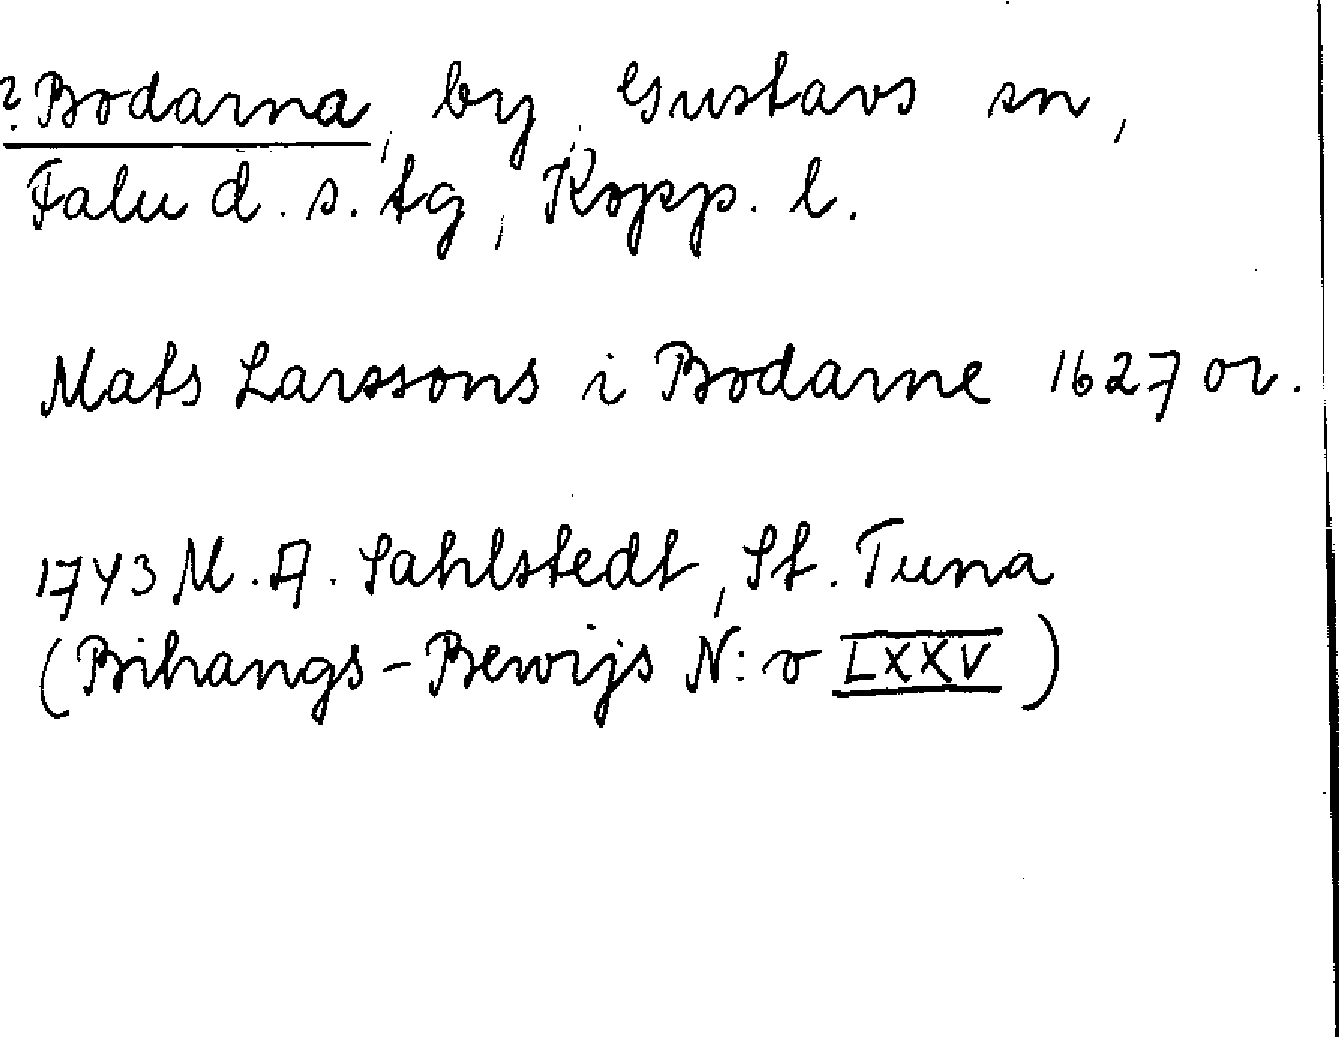 ?Bodarna, by, Gustavs sn,
Falu d. s. tg, Kopp. l.
Mats Larssons i Bodarne 1627 or.
1743 M. A. Sahlstedt, St. Tuna
(Bihangs-Bewijs N:o LXXV)